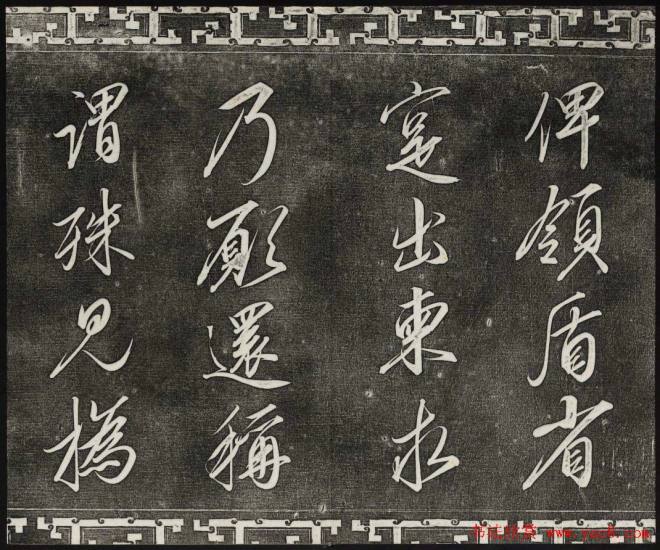 俾領盾省
寔出柬求
乃願還稱
謂殊見撝
书法欣赏 www.yac8.com